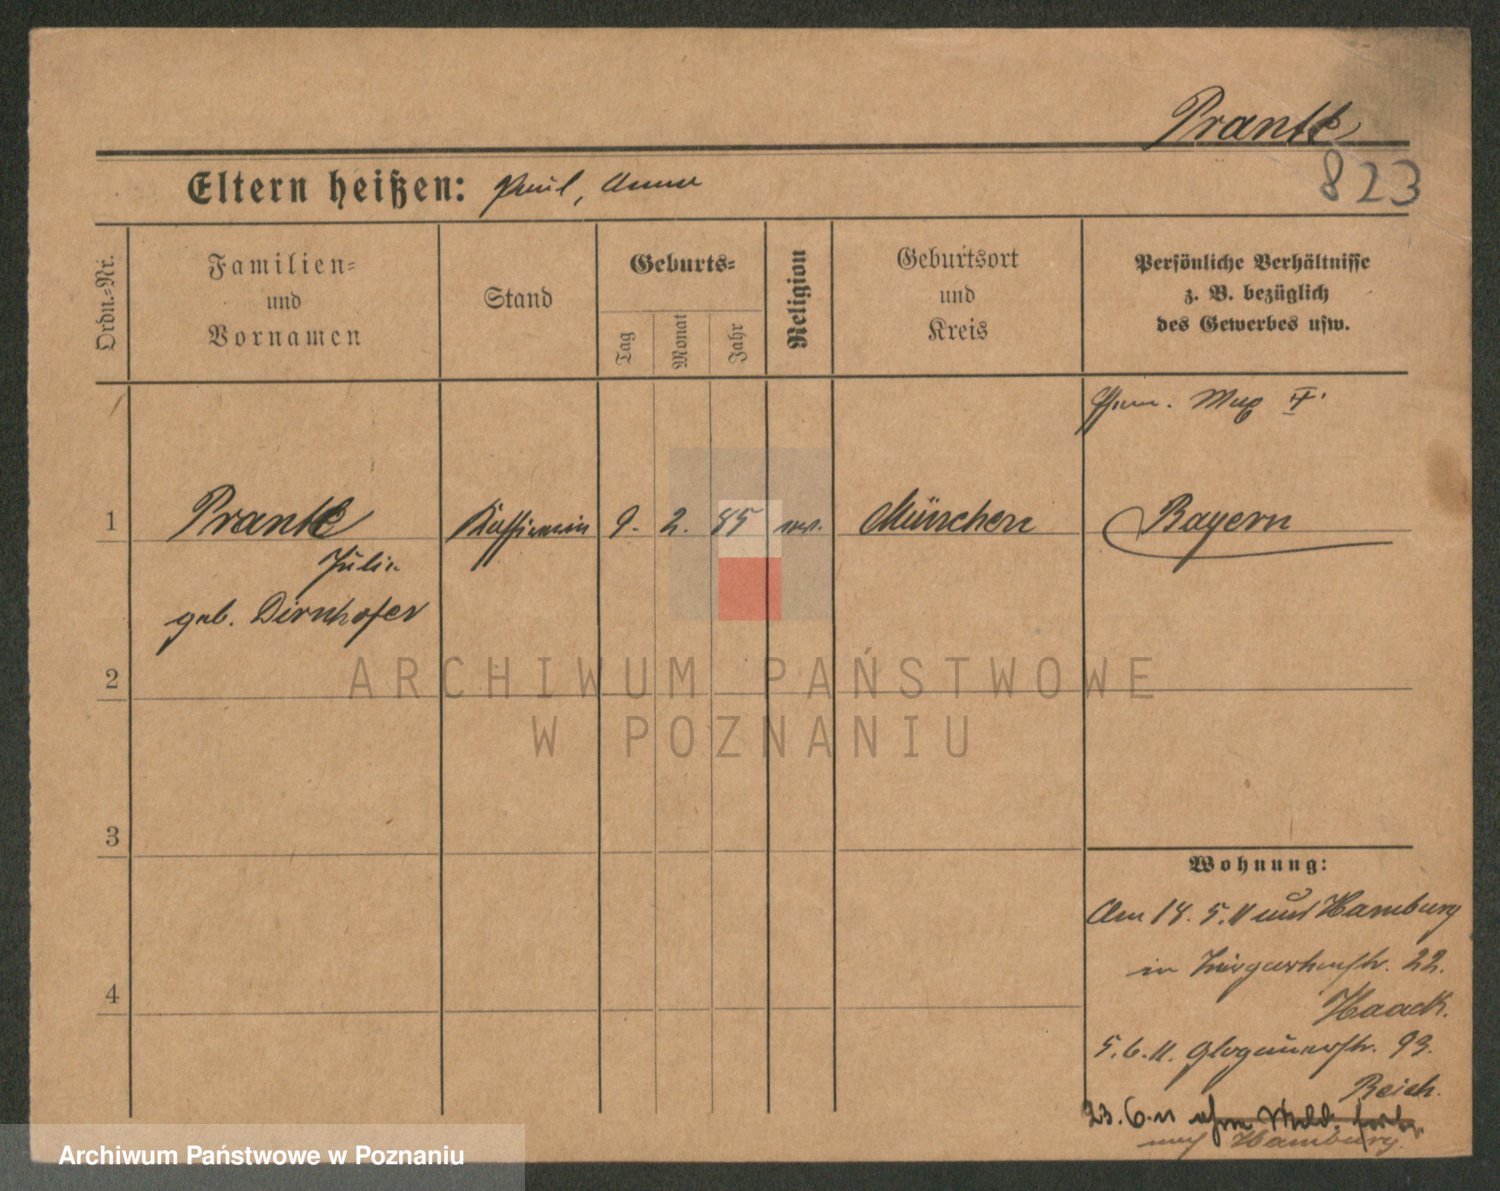 Prantl
823
Eltern heißen: Paul, Anna
Ordn.-Nr.
Familien-
und
Vornamen
Stand
Geburts-
Tag
Monat
Jahr
Religion
Geburtsort
und
Kreis
Persönliche Verhältnisse
z. B. bezüglich
des Gewerbes usw.
1
Prantl
Julie
geb. Dirnhofer
Kassiererin
9. 2. 85
München
Bayern
2
3
4
Wohnung:
Am 14. 5. 11 aus Hamburg
in 22.
Haack.
5. 6. 11. Glogauerstr. 93.
Reich.
23. 6. 11 ohne Meld. fort.
nach Hamburg.
ARCHIWUM PAŃSTWOWE
W POZNANIU
Archiwum Państwowe w Poznaniu